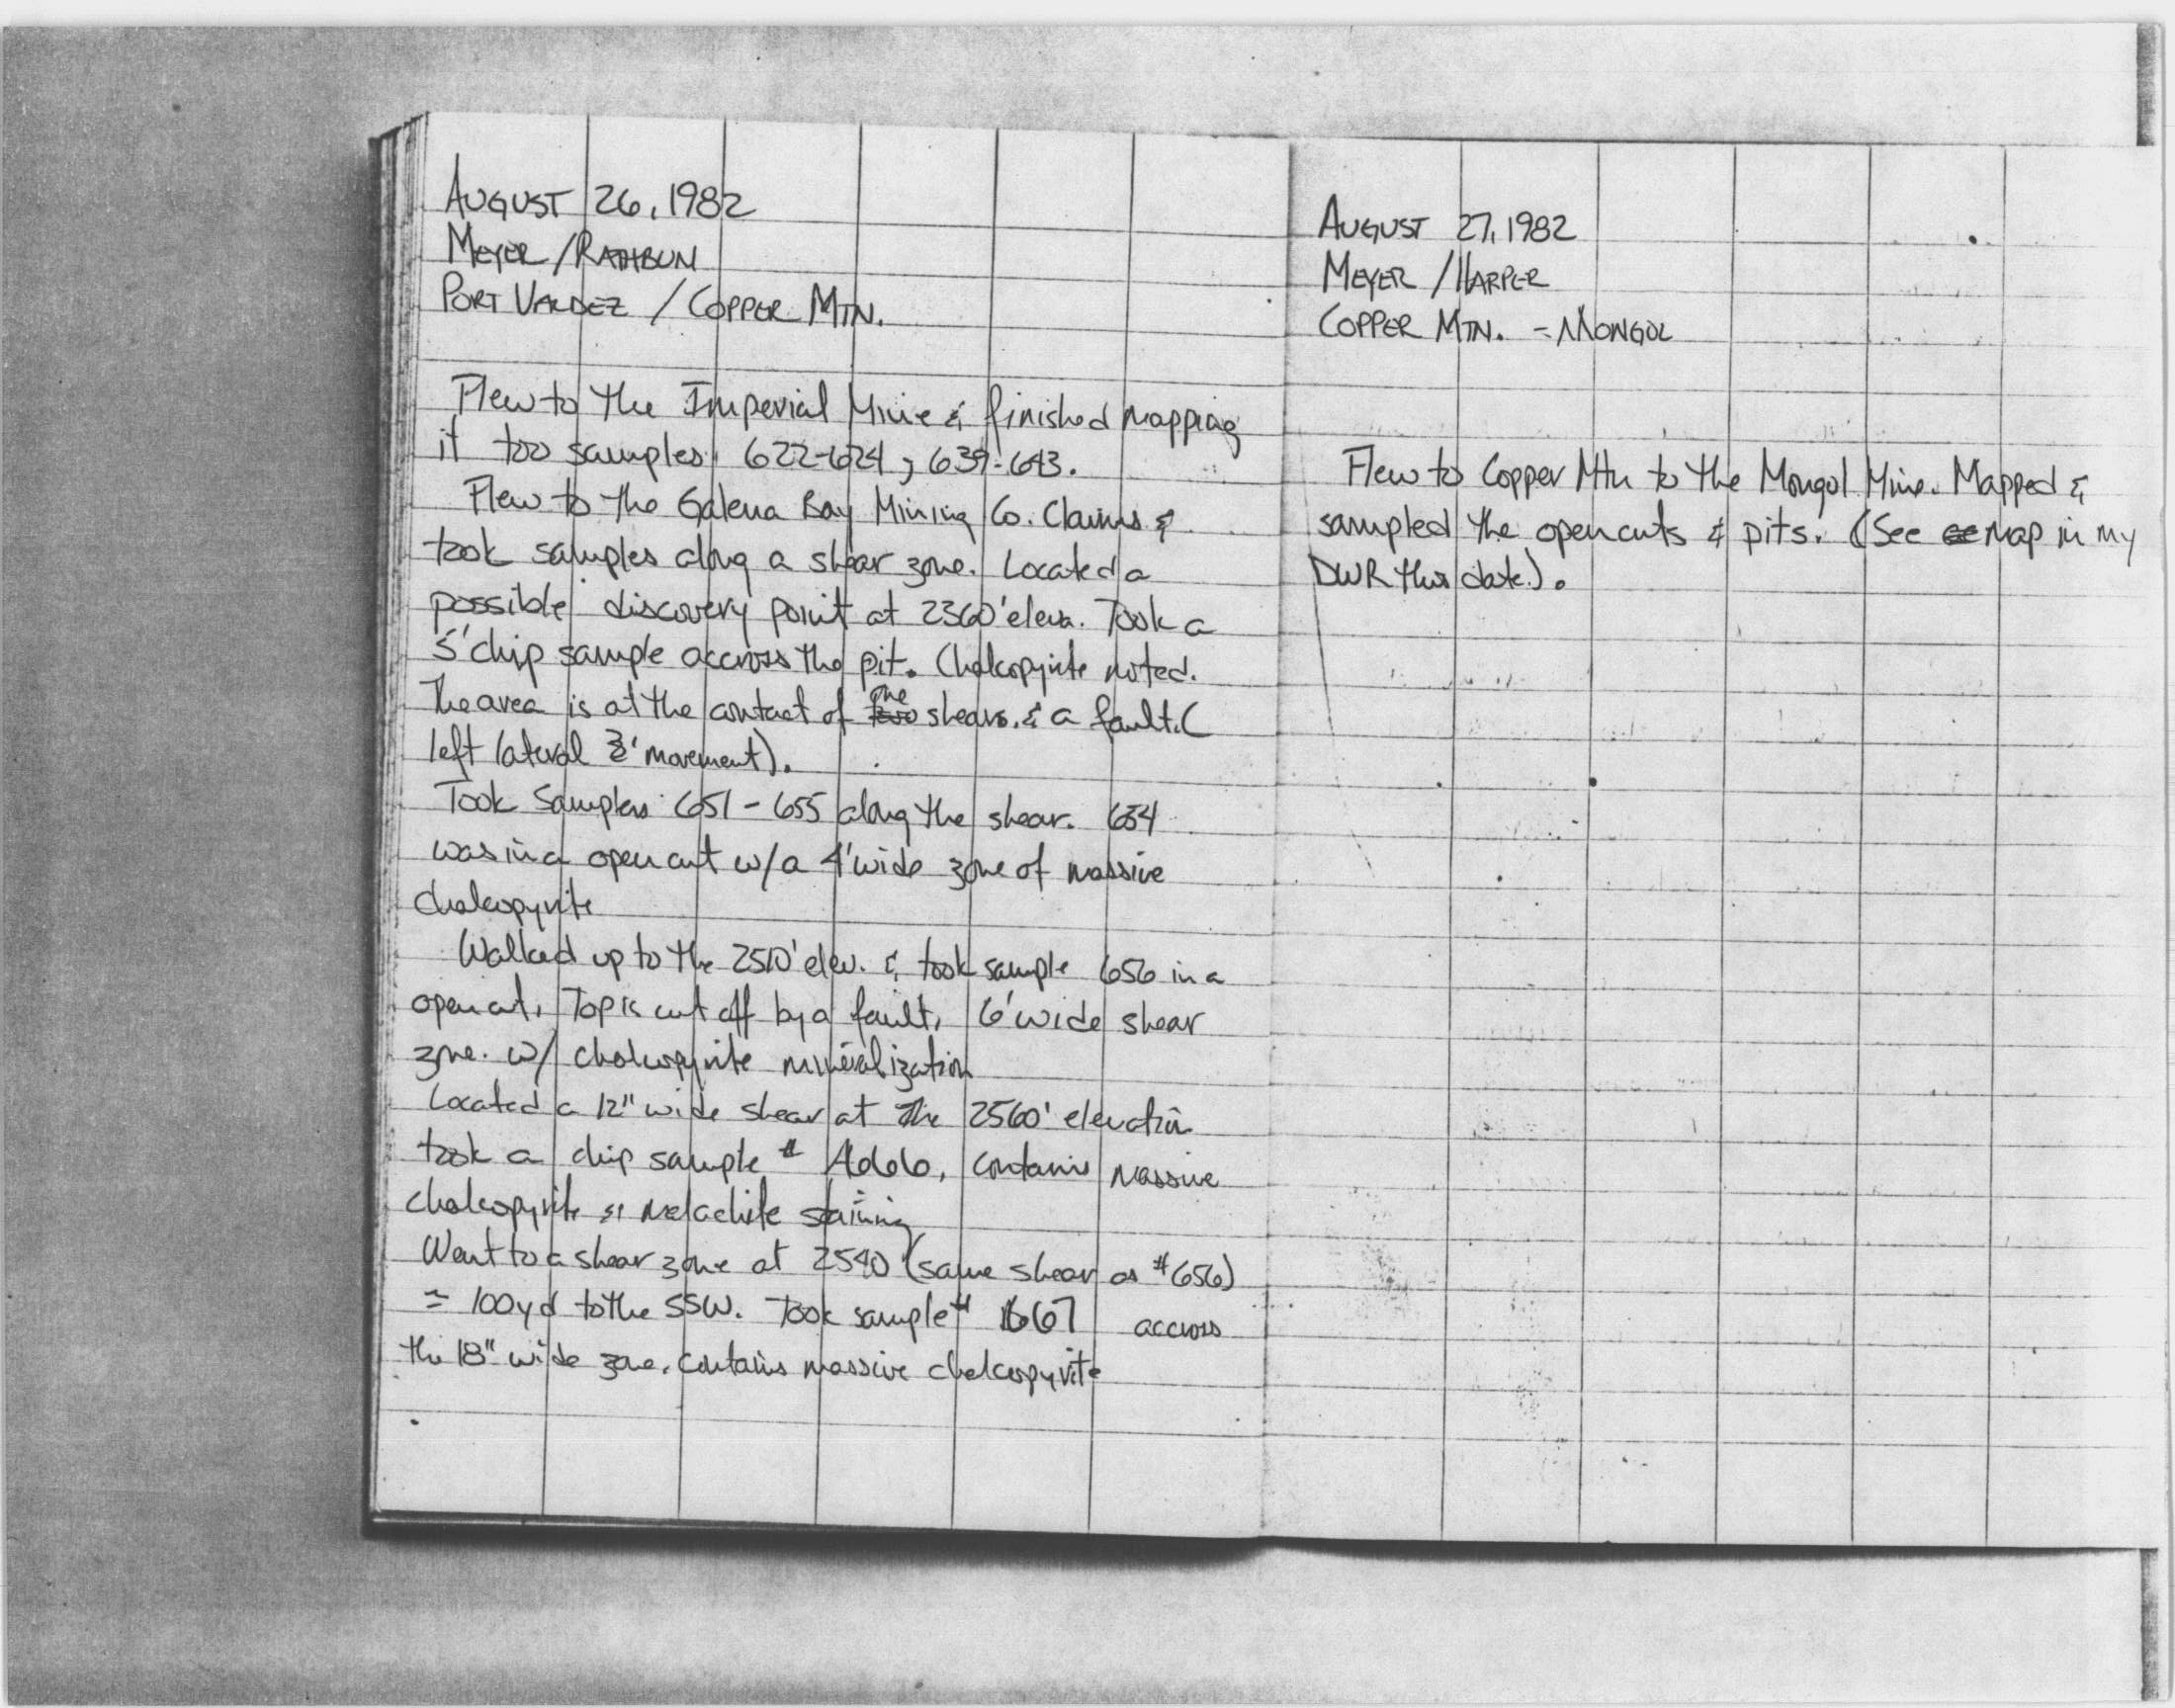 AUGUST 26, 1982
MEYER / RATHBUN
PORT VALDEZ / COPPER MTN.
Flew to the Imperial Mine & finished mapping
it too samples 622-624, 639-643.
Flew to the Galena Bay Mining Co. Claims &
took samples along a shear zone. Located a
possible discovery point at 2360' elev. Took a
5' chip sample accross the pit. Chalcopyrite noted.
The area is at the contact of one shears, & a fault. (
left lateral movement).
Took Samples 651 - 655 along the shear. 654
was in a open cut w/a 4' wide zone of massive
chalcopyrite
Walked up to the 2510' elev. & took sample 656 in a
open cut, Top is cut off by a fault, 6' wide shear
zone. w/ chalcopyrite mineralization
Located a 12" wide shear at the 2560' elevation
took a chip sample # contains massive
chalcopyrite & melachite staining
Went to a shear zone at 2540 (same shear as #656)
≈ 100yd to the SSW. Took sample # 667 accross
the 18" wide zone, contains massive chalcopyrite
AUGUST 27, 1982
MEYER / HARPER
COPPER MTN. - MONGOL
Flew to Copper Mtn to the Mongol Mine. Mapped &
sampled the opencuts & pits. (See map in my
DWR this date.).